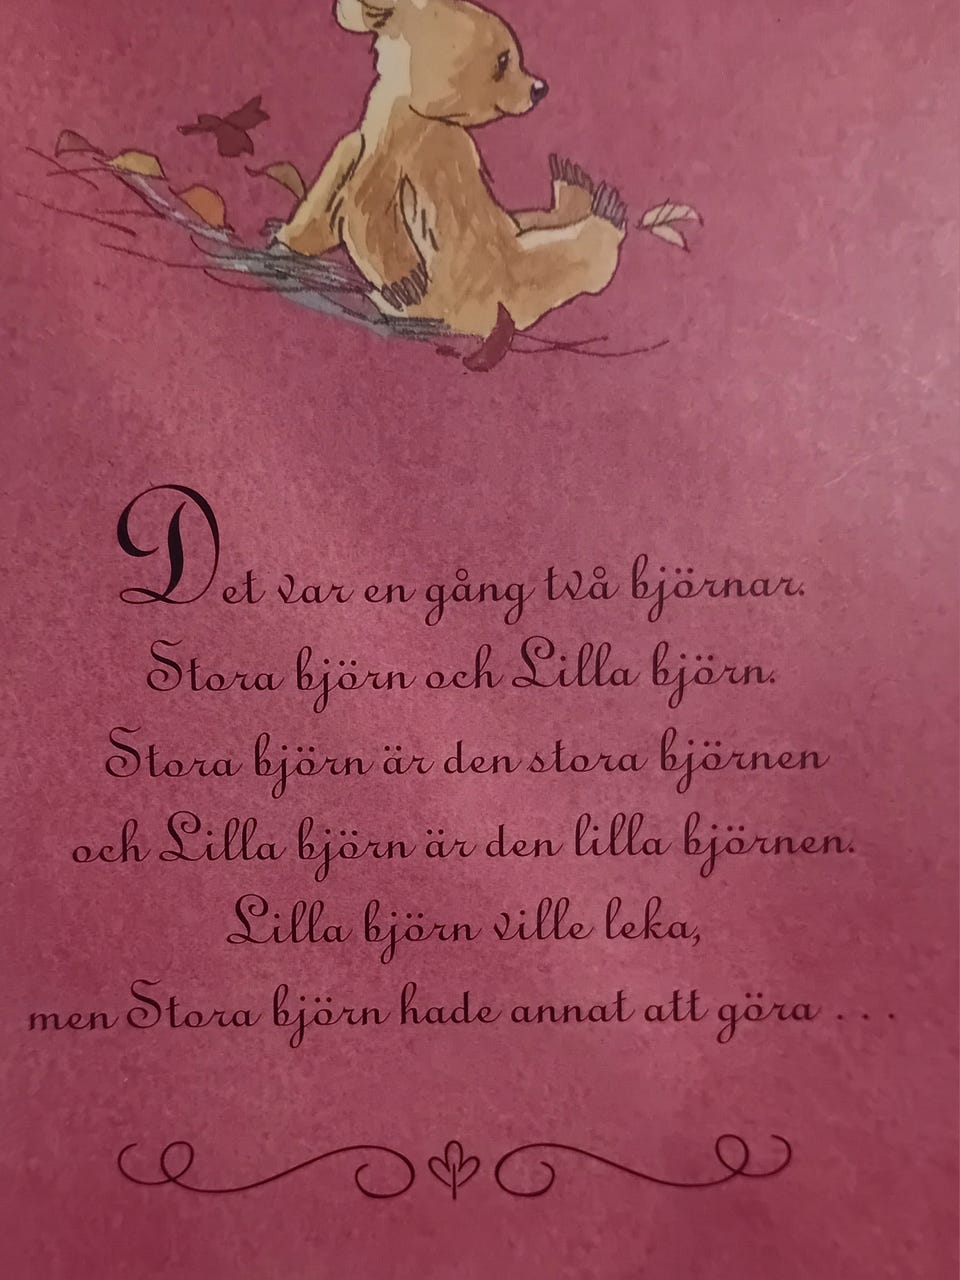 Det var en gång två björnar.
Stora björn och Lilla björn.
Stora björn är den stora björnen
och Lilla björn är den lilla björnen.
Lilla björn ville leka,
men Stora björn hade annat att göra . . .